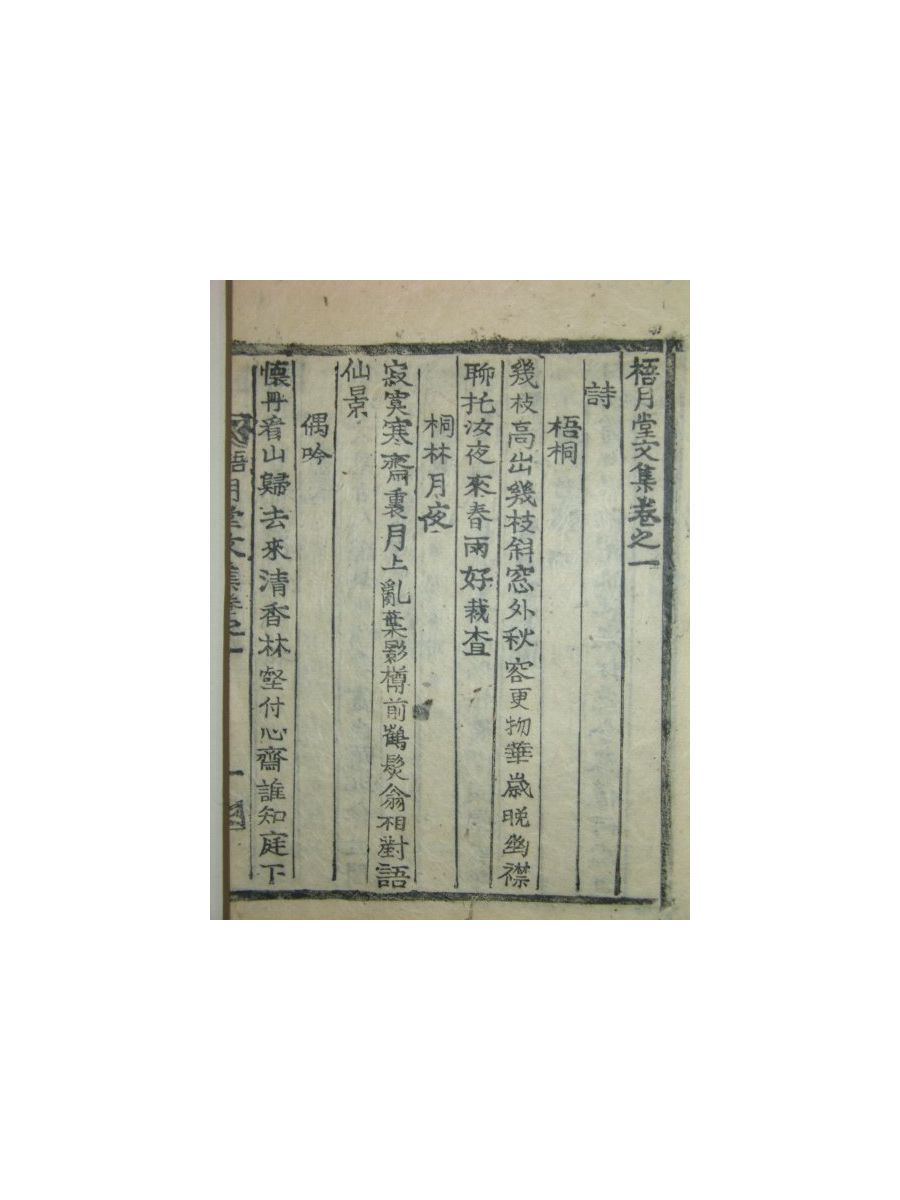 梧月堂文集卷之一
詩
梧桐
幾枝高出幾枝斜窓外秋容更物華歲晩幽襟
聊托汝夜來春雨好栽査
桐林月夜
寂寞寒齋裏月上亂葉影樽前鶴髮翁相對語
仙景
偶吟
懷丹看山歸去來清香林壑付心齋誰知庭下
梧月堂文集卷之一 一